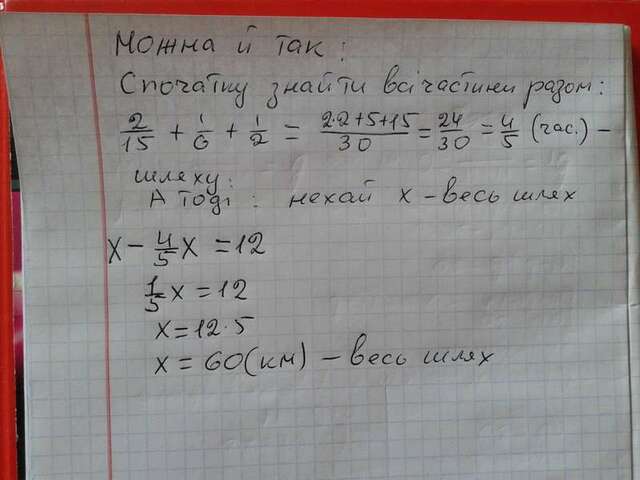 Можна й так:
Спочатку знайти всі частини разом:
2/15 + 1/6 + 1/2 = (2·2+5+15)/30 = 24/30 = 4/5 (час.) –
шляху.
А тоді: нехай х – весь шлях
х – 4/5х = 12
1/5х = 12
х = 12·5
х = 60(км) – весь шлях